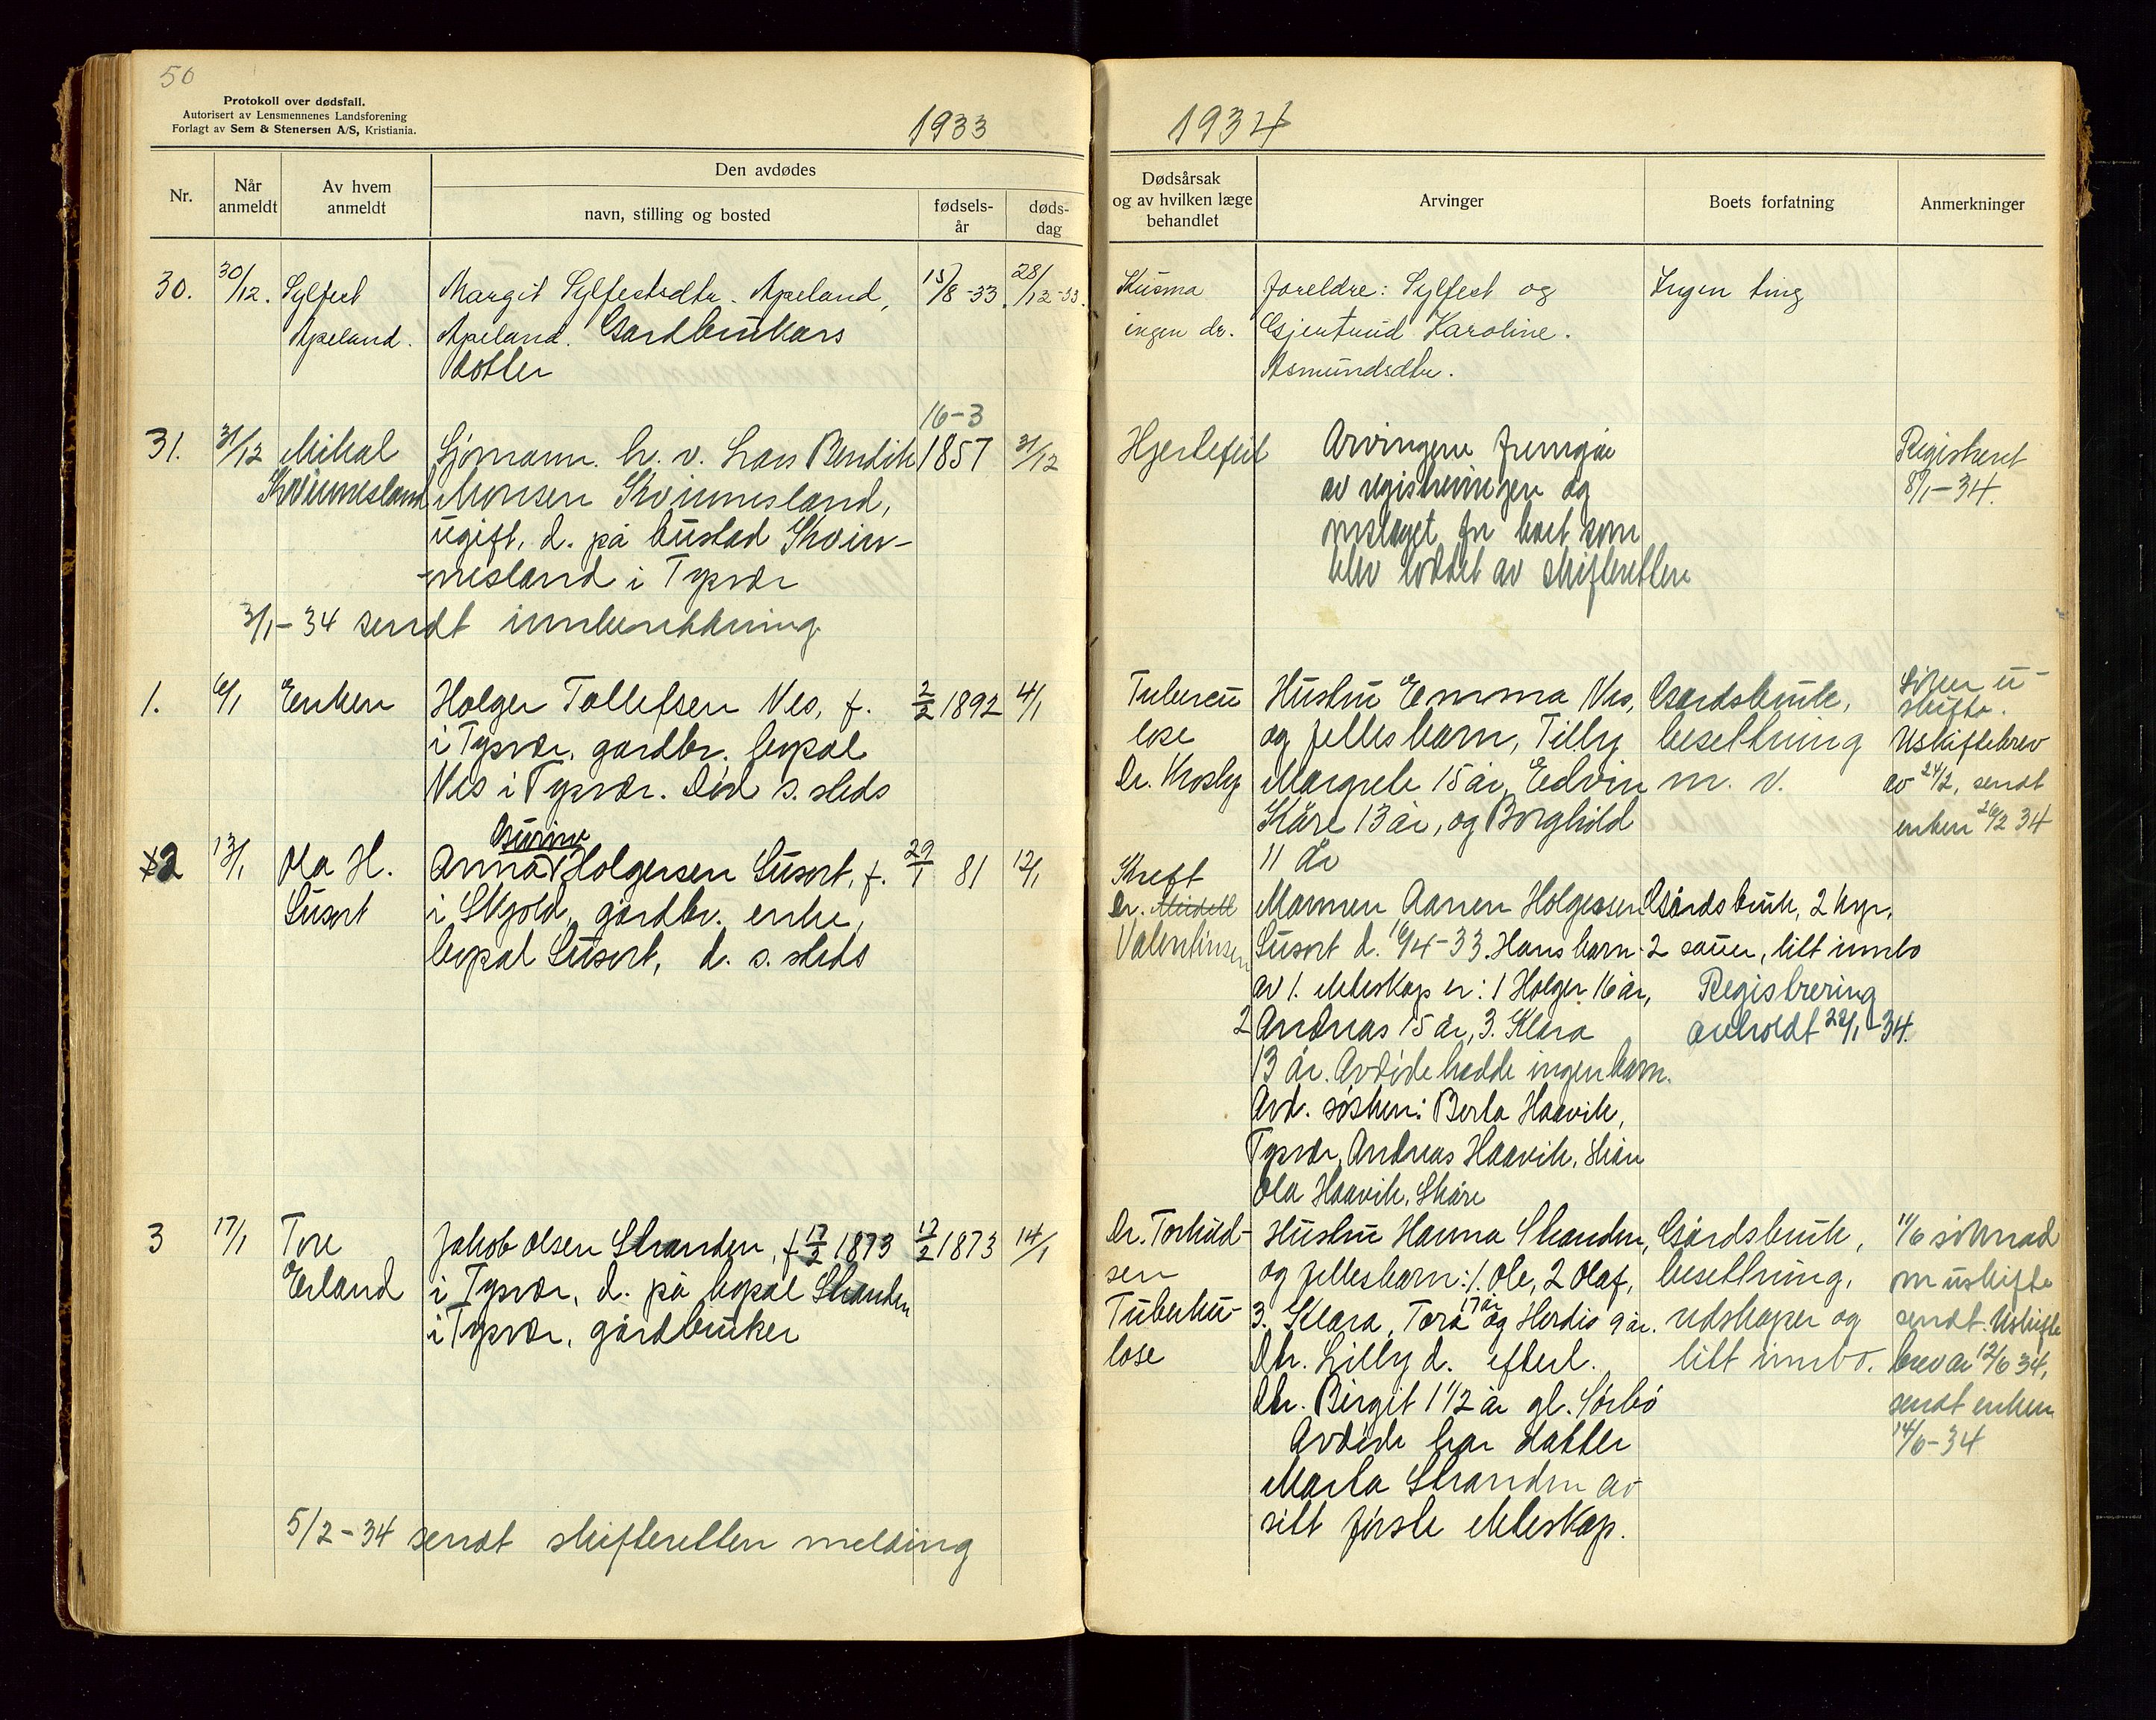 50
Protokoll over dødsfall.
Autorisert av Lensmennenes Landsforening
Forlagt av Sem & Stenersen A/S, Kristiania.
1933
1934
Nr.
Når anmeldt
Av hvem anmeldt
Den avdødes
navn, stilling og bosted
fødsels-år
døds-dag
Dødsårsak og av hvilken læge behandlet
Arvinger
Boets forfatning
Anmerkninger
30. 30/12. Sylfest Margit Sylfestsdtr. Apeland, 15/8-33. 28/12-33.
Apeland. Apeland. Gardbrukars
dotter
ingen dr.
Foreldre: Sylfest og
Gjertrud Karoline.
Asmundsdtr.
Ingen ting
16-3
31. 31/12 Mikal Sjømann h. v. Lars Bendik 1857 31/12
Skvinnesland Monsen Skvinnesland,
ugift, d. på bustad Skvin-
nesland i Tysvær
3/1-34 sendt innberetning
Hjertefeil
Arvingene fremgår
av registreringen og
omslaget for boet som
blev av skifteretten
Registrert
8/1-34.
1. 6/1 Enken Holger Tollefsen Nes, f. 2/2 1892 4/1
i Tysvær, gardbr. bopæl
Nes i Tysvær. Død s. steds
Tubercu
lose
Dr. Krosby
Hustru Emma Nes,
og fellesbarn, Tilly
Margrete 15 år, Edvin
Kåre 13 år, og Borghild
11 år
Gardsbruk,
besettning
m. v.
Söker u-
skifte.
Uskiftebrev
av 24/2, sendt
enken 26/2 34
2 13/1 Ola H. Anna Gurine Holgersen Susort, f. 29/1 81 12/1
Susort i Skjold, gardbr. enke,
bopæl Susort, d. s. steds
Kreft
Dr.
Valentinsen
Mannen Aanen Holgersen
Susort d. 16/4-33. Hans barn
av 1. ekteskap er: 1 Holger 16 år,
2 Andreas 15 år, 3. Klara
13 år. Avdöde hadde ingen barn.
Avd. sösken: Berta Haavik,
Tysvær, Andreas Haavik, Skåre
Ola Haavik, Skåre
Gårdsbruk, 2 kyr,
2 sauer, litt innbo
Registrering
avholdt 22/1-34.
3 17/1 Tore Jakob Olsen Stranden, f 17/2 1873 17/2 1873 14/1
Erland i Tysvær, d. på bopæl Stranden
i Tysvær, gårdbruker
5/2-34 sendt skifteretten melding
Dr. Torkild-
sen
Tuberku-
lose
Hustru Hanna Stranden,
og fellesbarn: 1. Ole, 2 Olaf,
3. Klara, Tora 17 år og Herdis 9 år.
Dtr. Lilly d. efterl.
Dtr. Birgit 1 1/2 år gl. Sörbö
Avdöde har datter
Marta Stranden av
sitt förste ekteskap.
Gårdsbruk,
besettning,
redskaper og
litt innbo.
11/6 söknad
om uskifte
sendt. Uskifte
brev av 12/6 34,
sendt enken
14/6-34